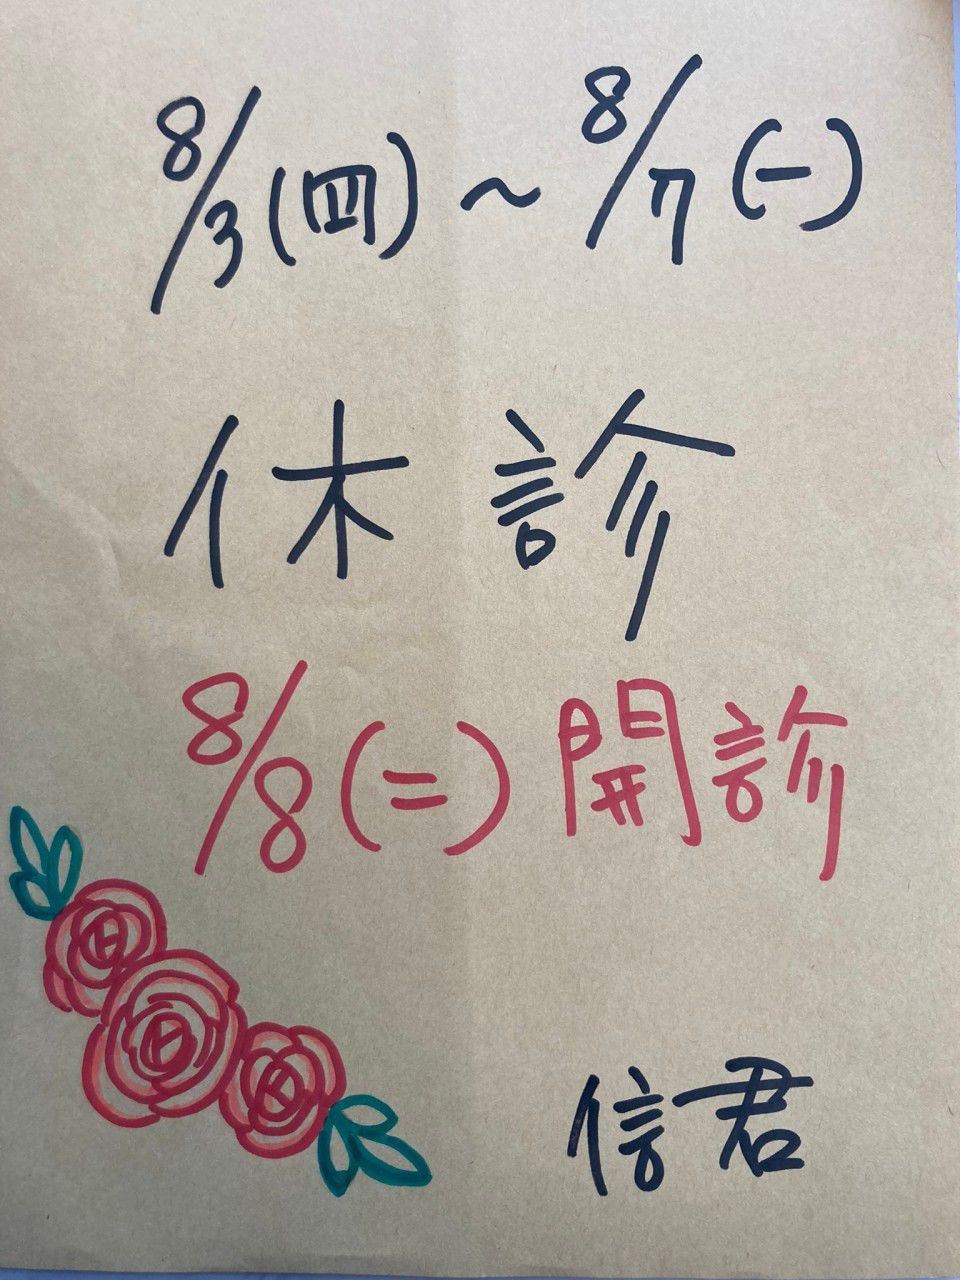 8/3(四)~8/7(一)
休診
8/8(二)開診
信君